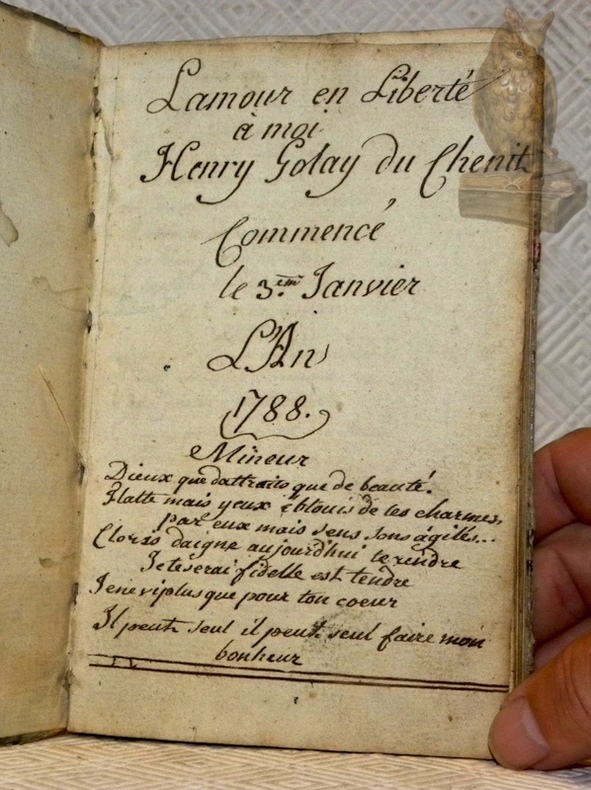 Lamour en Liberté
à moi
Henry Golay du Chenit
Commencé
le 3.em Janvier
L'An
1788.
Mineur
Dieux que dattraits que de beauté.
Flatte mais yeux éblouis de tes charmes,
par eux mais sens sons agités...
Cloris daigne aujourdhui te rendre
Je te serai fidelle est tendre
Je ne vi plus que pour ton coeur
Il peut seul il peut seul faire mon
bonheur